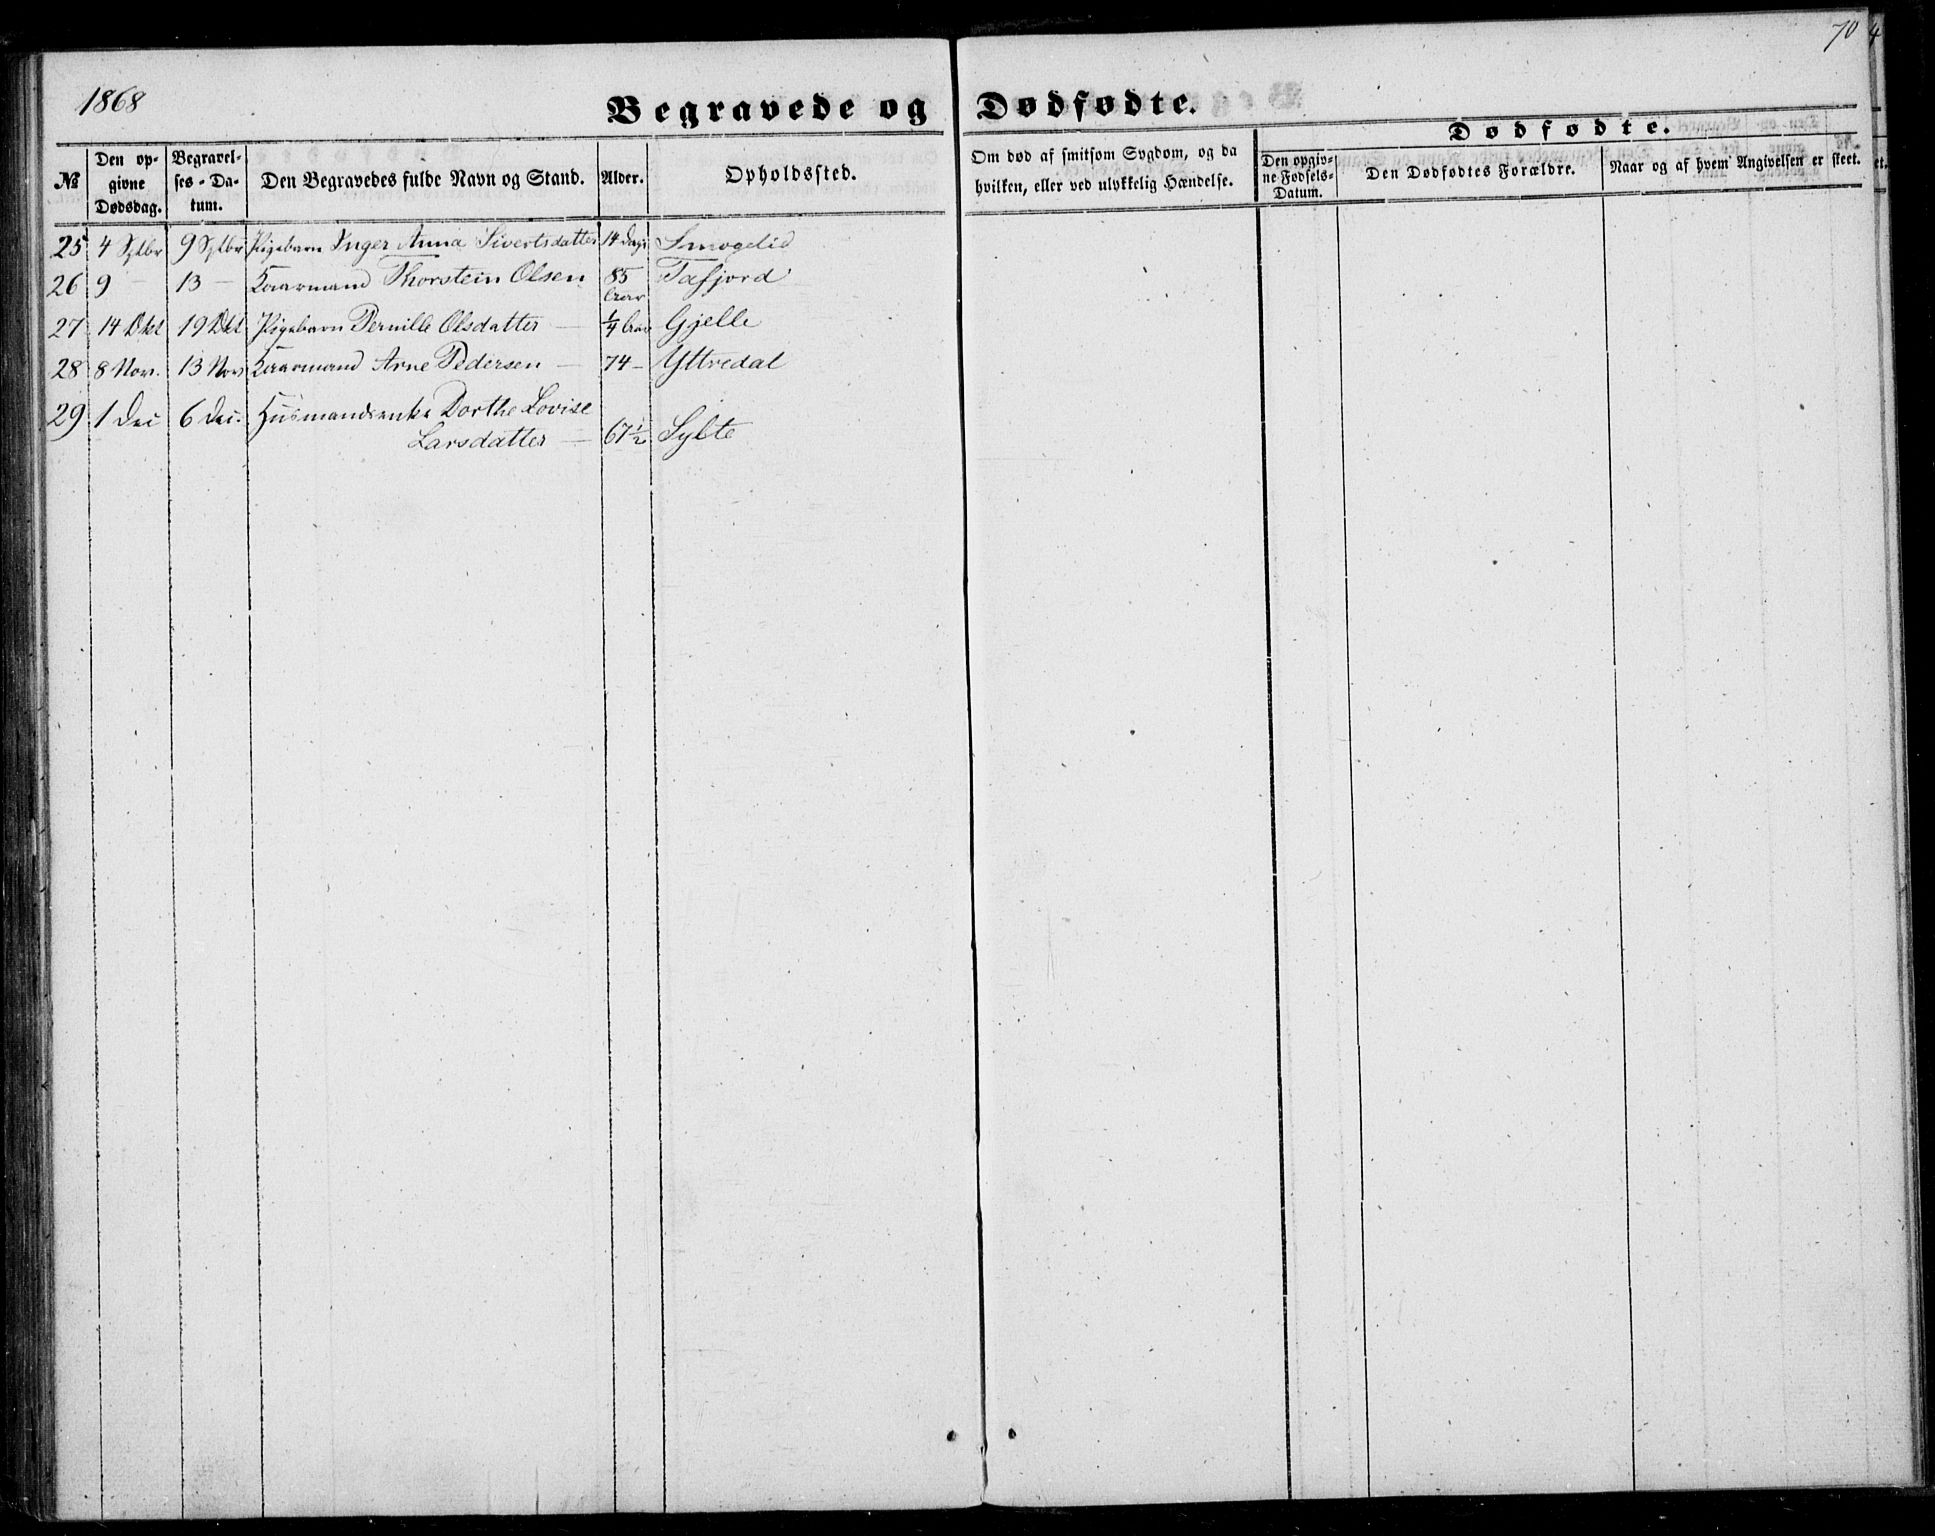 70
4
1868
Begravede og Dødfødte.
Dødfødte.
№ Den op- givne Dødsdag. Begravel- ses-Da- tum. Den Begravedes fulde Navn og Stand. Alder. Opholdssted. Om død af smitsom Sygdom, og da hvilken, eller ved ulykkelig Hændelse. Den opgiv- ne Fødsels- Datum. Den Dødfødtes Forældre. Naar og af hvem Angivelsen er skeet.
et.
25 4 Sptbr 9 Sptbr Pigebarn Inger Anna Sivertsdatter 14 Dage Smogelid
26 9 – 13 – Kaarmand Thorstein Olsen 85 Tafjord
27 14 Okt 19 Okt Pigebarn Pernille Olsdatter – 1/4 Gjelle
28 8 Nov. 13 Nov Kaarmand Arne Pedersen – 74 – Yttredal
29 1 Dec 6 Dec. Husmandsenke Dorthe Lovise
Larsdatter – 67 1/2 Sylte